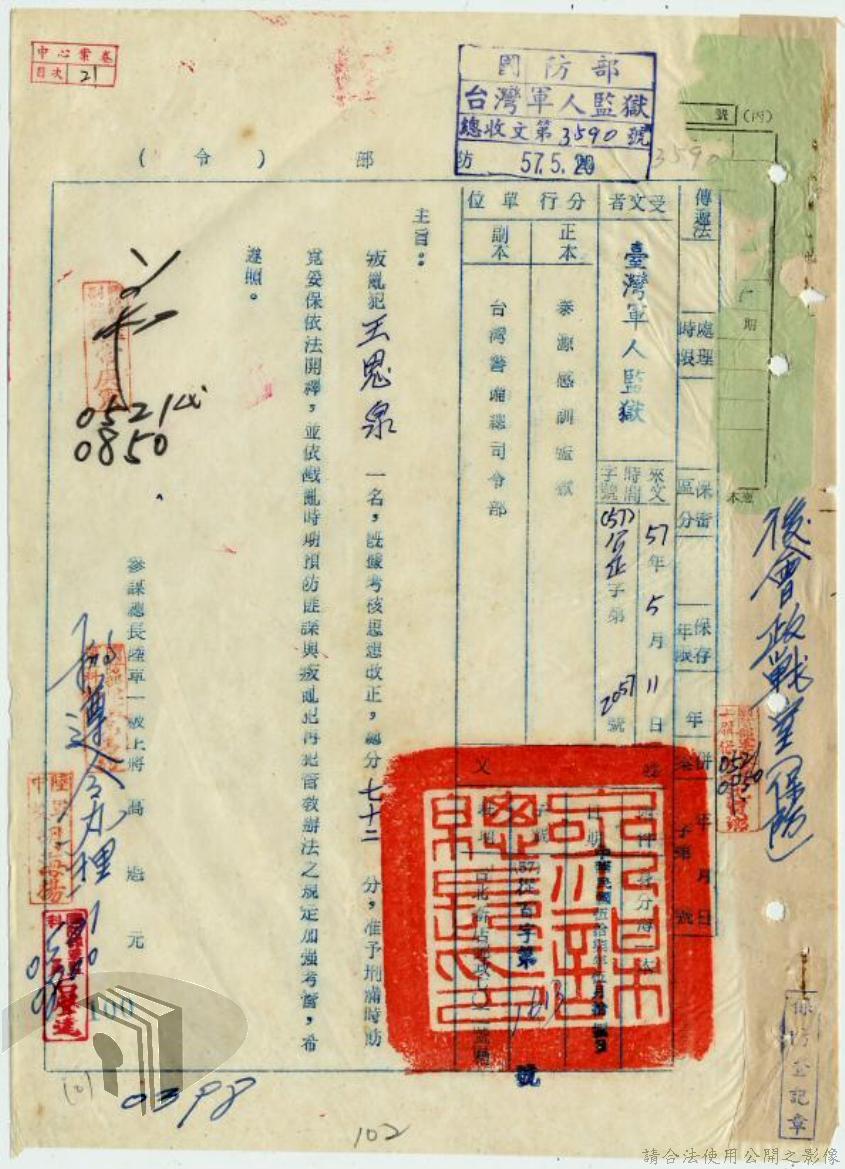 中心案卷
目次 21
國防部
台灣軍人監獄
總收文第3590號
57.5.20
3590
號 (丙)
期
(令) 部 防
傳遞法
處理時限
保密區分
保存年限
年 月 日
字第 號
受文者
臺灣軍人監獄
來文
時間
字號
57年5月11日
(57)公正字第2057號
分行單位
正本
泰源感訓監獄
副本
台灣警備總司令部
中華民國伍拾柒年伍月拾
(57)從百字第
號
主旨:
叛亂犯王思泉一名,既據考核思想改正,總分七十二分,准予刑滿時飭
覓妥保依法開釋,並依戡亂時期預防匪諜與叛亂犯再犯管教辦法之規定加強考管,希
遵照。
參謀總長陸軍一級上將高魁元
0521
0850
遵令办理
後會政戰室(保防)
0521
保防登記章
100
0398
102
請合法使用公開之影像